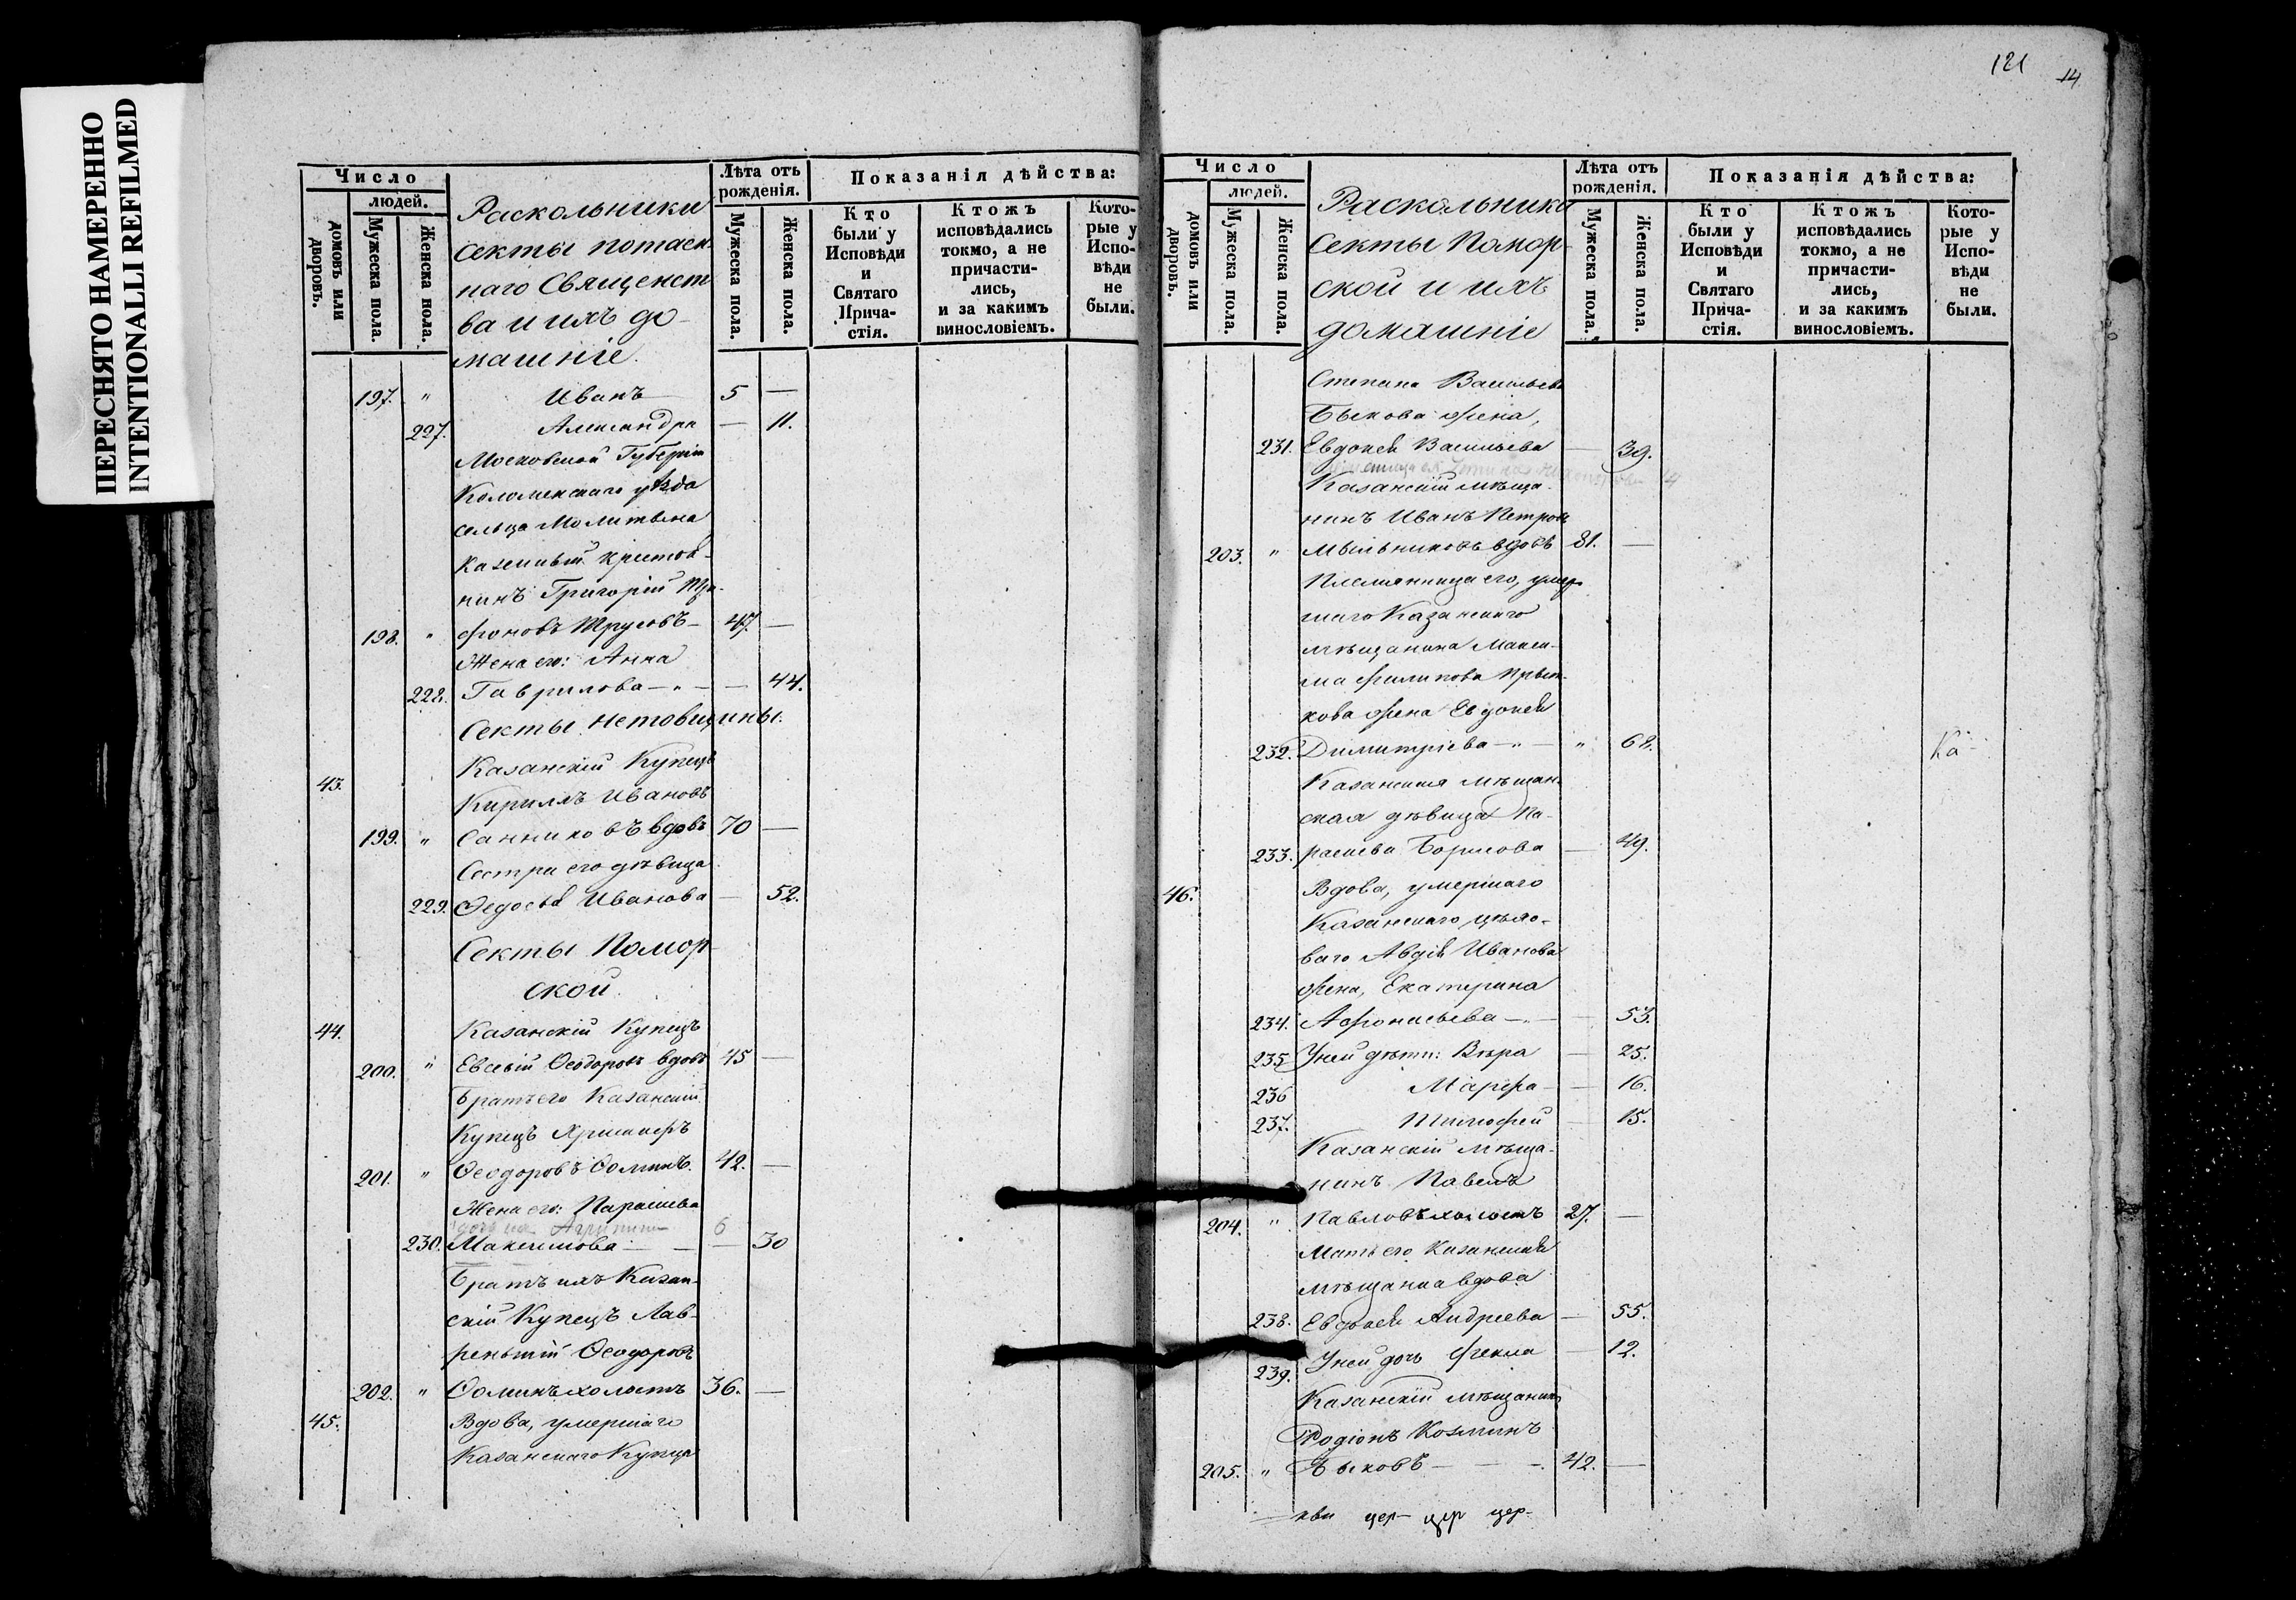 ПЕРЕСНЯТО НАМЕРЕННО
INTENTIONALLI REFILMED
Число
людей.
домовъ или дворовъ.
Мужеска пола.
Женска пола.
Раскольники
секты потаен-
наго Священст
ва и ихъ до-
машніе.
Лѣта отъ рожденія.
Мужеска пола.
Женска пола.
Показанія дѣйства:
Кто были у Исповѣди и Святаго Прича-стія.
Ктожъ исповѣдались токмо, а не причасти-лись, и за какимъ винословіемъ.
Кото-рые у Испо-вѣди не были.
197. " Иванъ 5 —
227. Александра — 11.
Московской Губерніи
Коломенскаго уѣзда
сельца Молитвина
казенный крестья-
нинъ Григорій
198. " Трусовъ — 47. —
Жена его: Анна
228. Гаврилова — " — — 44.
Секты нетовщины.
43. Казанскій Купецъ
Кириллъ Ивановъ
199. " Санниковъ вдовъ 70 —
Сестра его дѣвица
229. Ѳедосья Иванова — 52.
Секты Помор-
ской.
44. Казанскій Купецъ
200. " Евсевій Ѳеодоровъ вдовъ 45 —
Братъ его Казанскій
Купецъ
201. " Ѳеодоровъ Ѳоминъ. 42. —
Жена его: Параскева
6
230. Максимова — — — 30
Братъ ихъ Казан-
скій Купецъ Лав-
рентій Ѳеодоровъ
202. " Ѳоминъ холостъ 36. —
45. Вдова, умершаго
Казанскаго Купца
121 14
Число
людей.
домовъ или дворовъ.
Мужеска пола.
Женска пола.
Раскольники
секты Помор-
ской и ихъ
домашніе
Лѣта отъ рожденія.
Мужеска пола.
Женска пола.
Показанія дѣйства:
Кто были у Исповѣди и Святаго Прича-стія.
Ктожъ исповѣдались токмо, а не причасти-лись, и за какимъ винословіемъ.
Кото-рые у Испо-вѣди не были.
Степана Васильева
Быкова жена,
231. Евдокія Васильева — 39.
Казанскій мѣща-
нинъ Иванъ Петровъ
203. " Мыльниковъ вдовъ 81. —
Племянница его, умер-
шаго Казанскаго
мѣщанина Макси-
ма Филипова
кова жена Евдокія
232. Димитріева — " — " 68. Ка
Казанская мѣщан-
ская дѣвица Па-
233. раскева Борисова — 49.
46. Вдова, умершаго
Казанскаго цехо-
ваго Авдія Иванова
жена, Екатерина
234. Афонасьева — " — — 53.
235 У ней дѣти: Вѣра — 25.
236 Марфа — — 16.
237. Тимофей — 15.
Казанскій мѣща-
нинъ Павелъ
204. " Павловъ холостъ 27. —
Мать его Казанская
мѣщанка вдова
238. Евдокія Андреева — 55.
239. У ней дочь Фекла — 12.
Казанскій мѣщанинъ
Родіонъ Козминъ
205. " Языковъ — — -. 42. —
кви цер- цер цер-